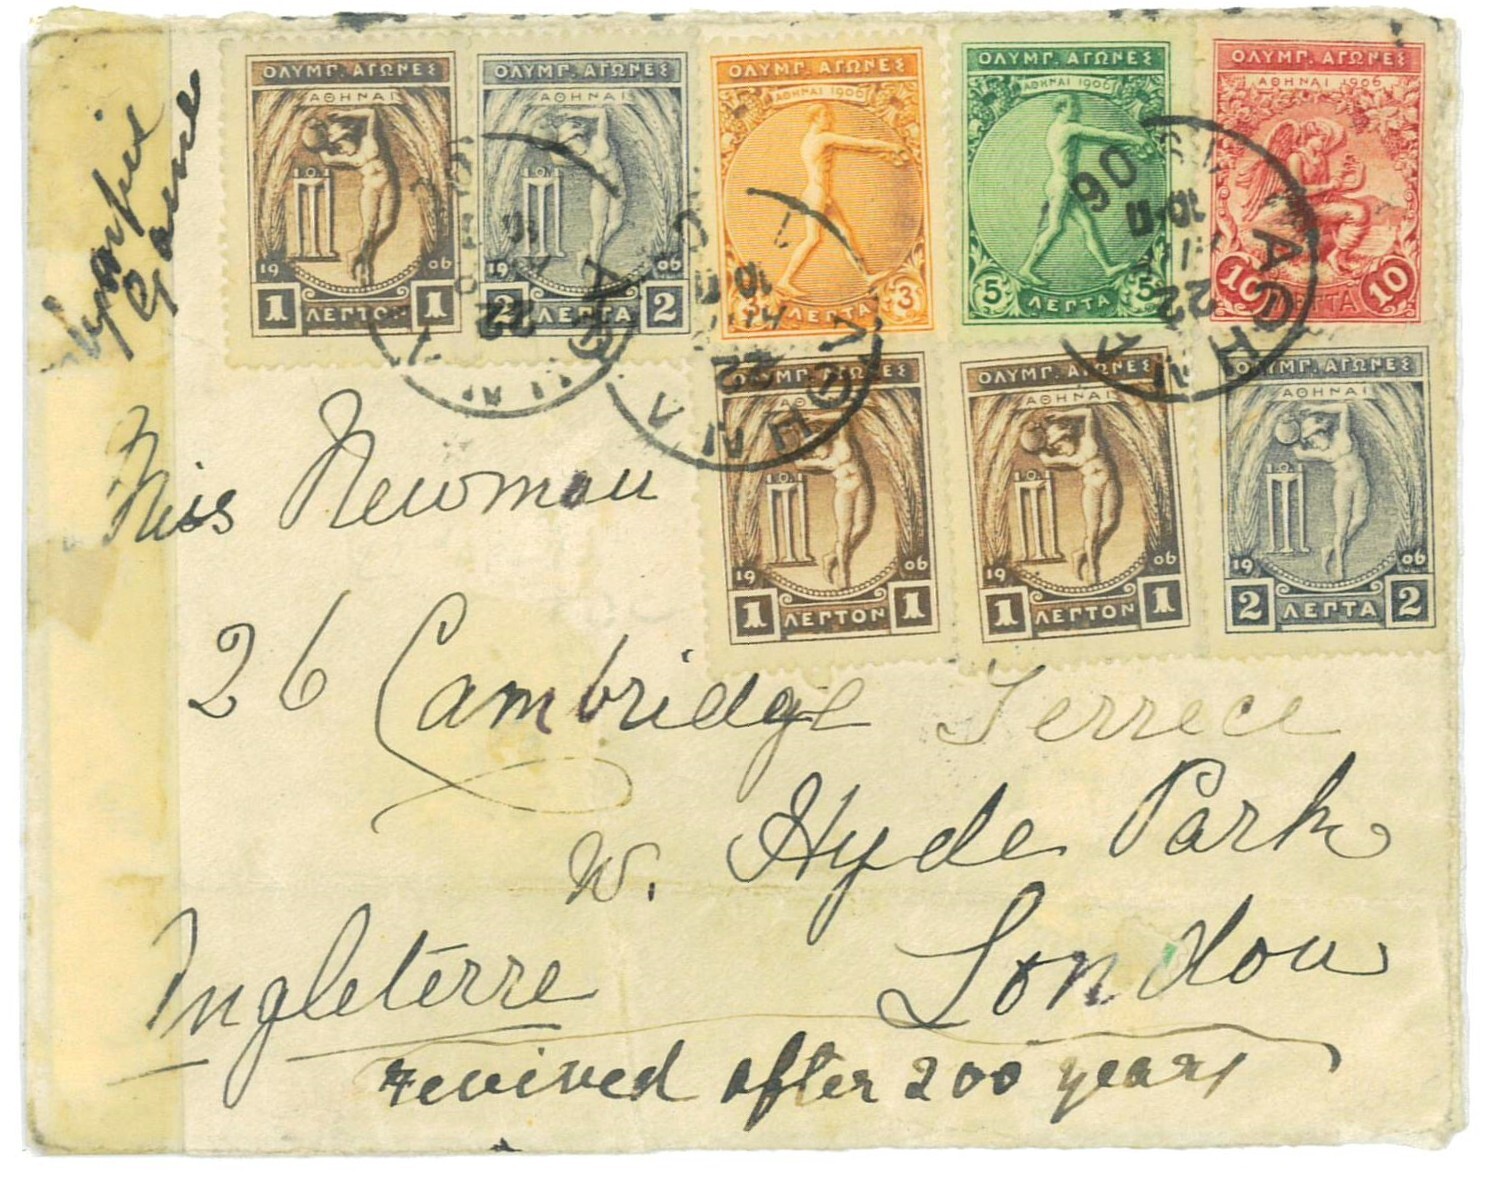 Olympic
Games
ΟΛΥΜΠ. ΑΓΩΝΕΣ
ΑΘΗΝΑΙ
19 06
1 ΛΕΠΤΟΝ 1
ΟΛΥΜΠ. ΑΓΩΝΕΣ
ΑΘΗΝΑΙ
19 06
2 ΛΕΠΤΑ 2
ΟΛΥΜΠ. ΑΓΩΝΕΣ
ΑΘΗΝΑΙ 1906
ΛΕΠΤΑ 3
ΟΛΥΜΠ. ΑΓΩΝΕΣ
ΑΘΗΝΑΙ 1906
5 ΛΕΠΤΑ 5
ΟΛΥΜΠ. ΑΓΩΝΕΣ
ΑΘΗΝΑΙ 1906
10 ΛΕΠΤΑ 10
ΟΛΥΜΠ. ΑΓΩΝΕΣ
ΑΘΗΝΑΙ
19 06
1 ΛΕΠΤΟΝ 1
ΟΛΥΜΠ. ΑΓΩΝΕΣ
ΑΘΗΝΑΙ
19 06
1 ΛΕΠΤΟΝ 1
ΟΛΥΜΠ. ΑΓΩΝΕΣ
ΑΘΗΝΑΙ
19 06
2 ΛΕΠΤΑ 2
ΑΘΗΝΑΙ
22
06
Miss Newman
26 Cambridge Terrece
W. Hyde Park
London
Ingleterre
revived after 200 years